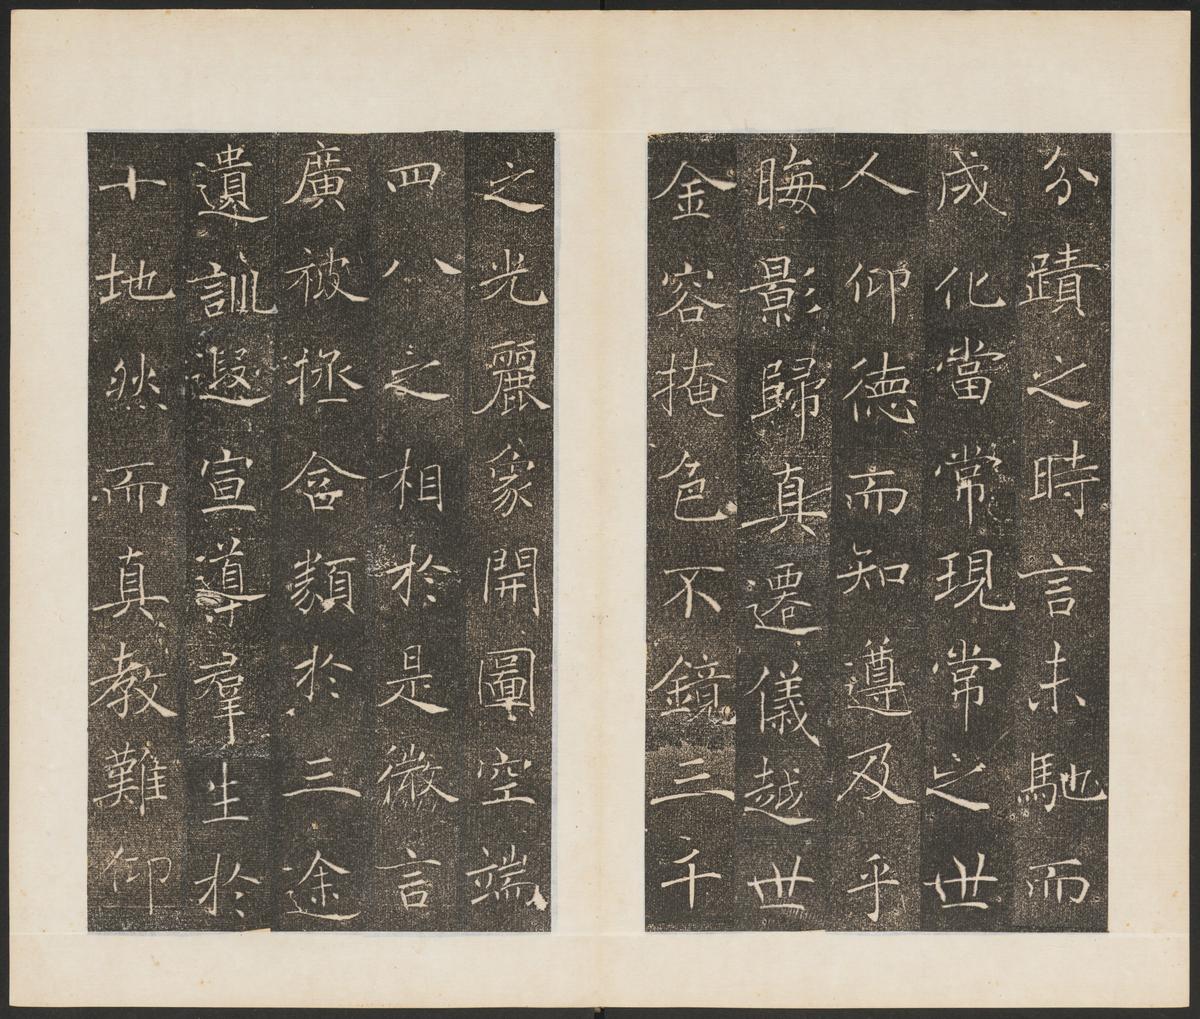 分蹟之時言未馳而
成化當常現常之世
人仰德而知遵及乎
晦影歸真遷儀越世
金容掩色不鏡三千
之光麗象開圖空端
四八之相於是微言
廣被拯含類於三途
遺訓遐宣導羣生於
十地然而真教難仰